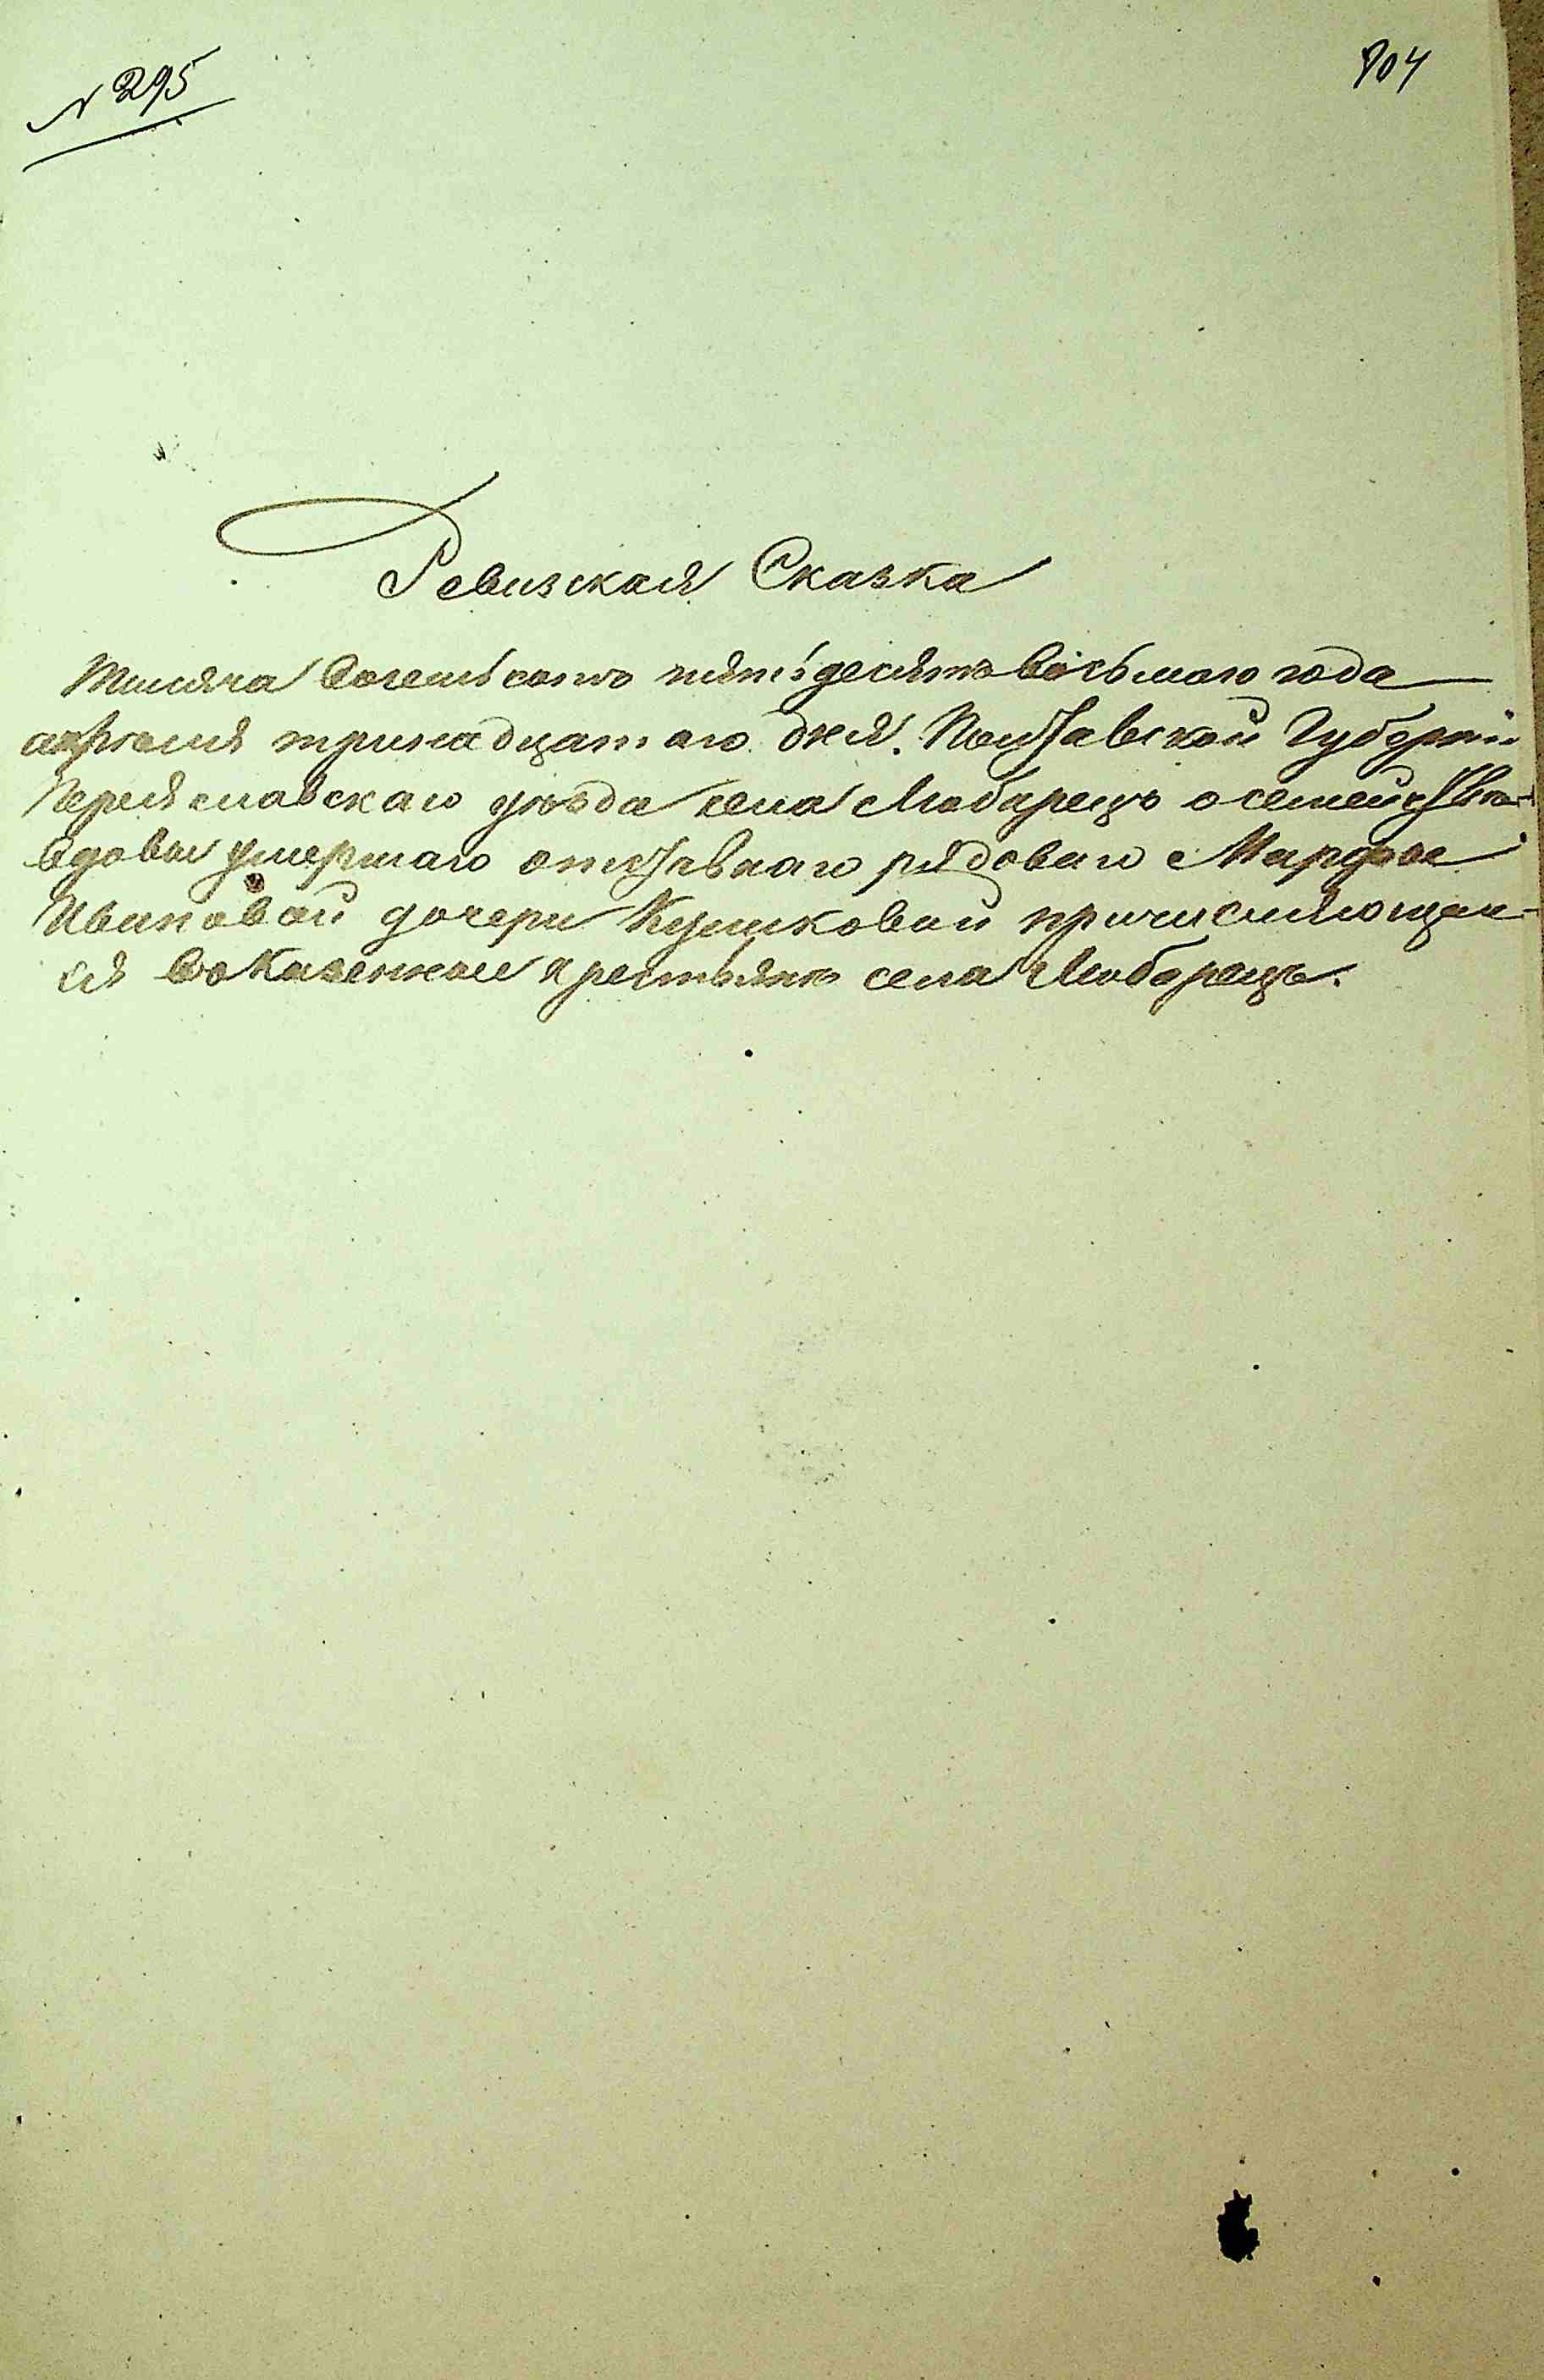 № 295
804
Ревизская Сказка
Тысяча восемьсотъ пятьдесятъ восьмаго года
апрѣля тринадцатаго дня. Полтавской Губерніи
Переяславскаго уѣзда села Любарецъ о семействѣ
вдовы умершаго отставнаго рядоваго Марфы
Ивановой дочери Куликовой причисляющей-
ся въ казенные крестьяне села Любарецъ.